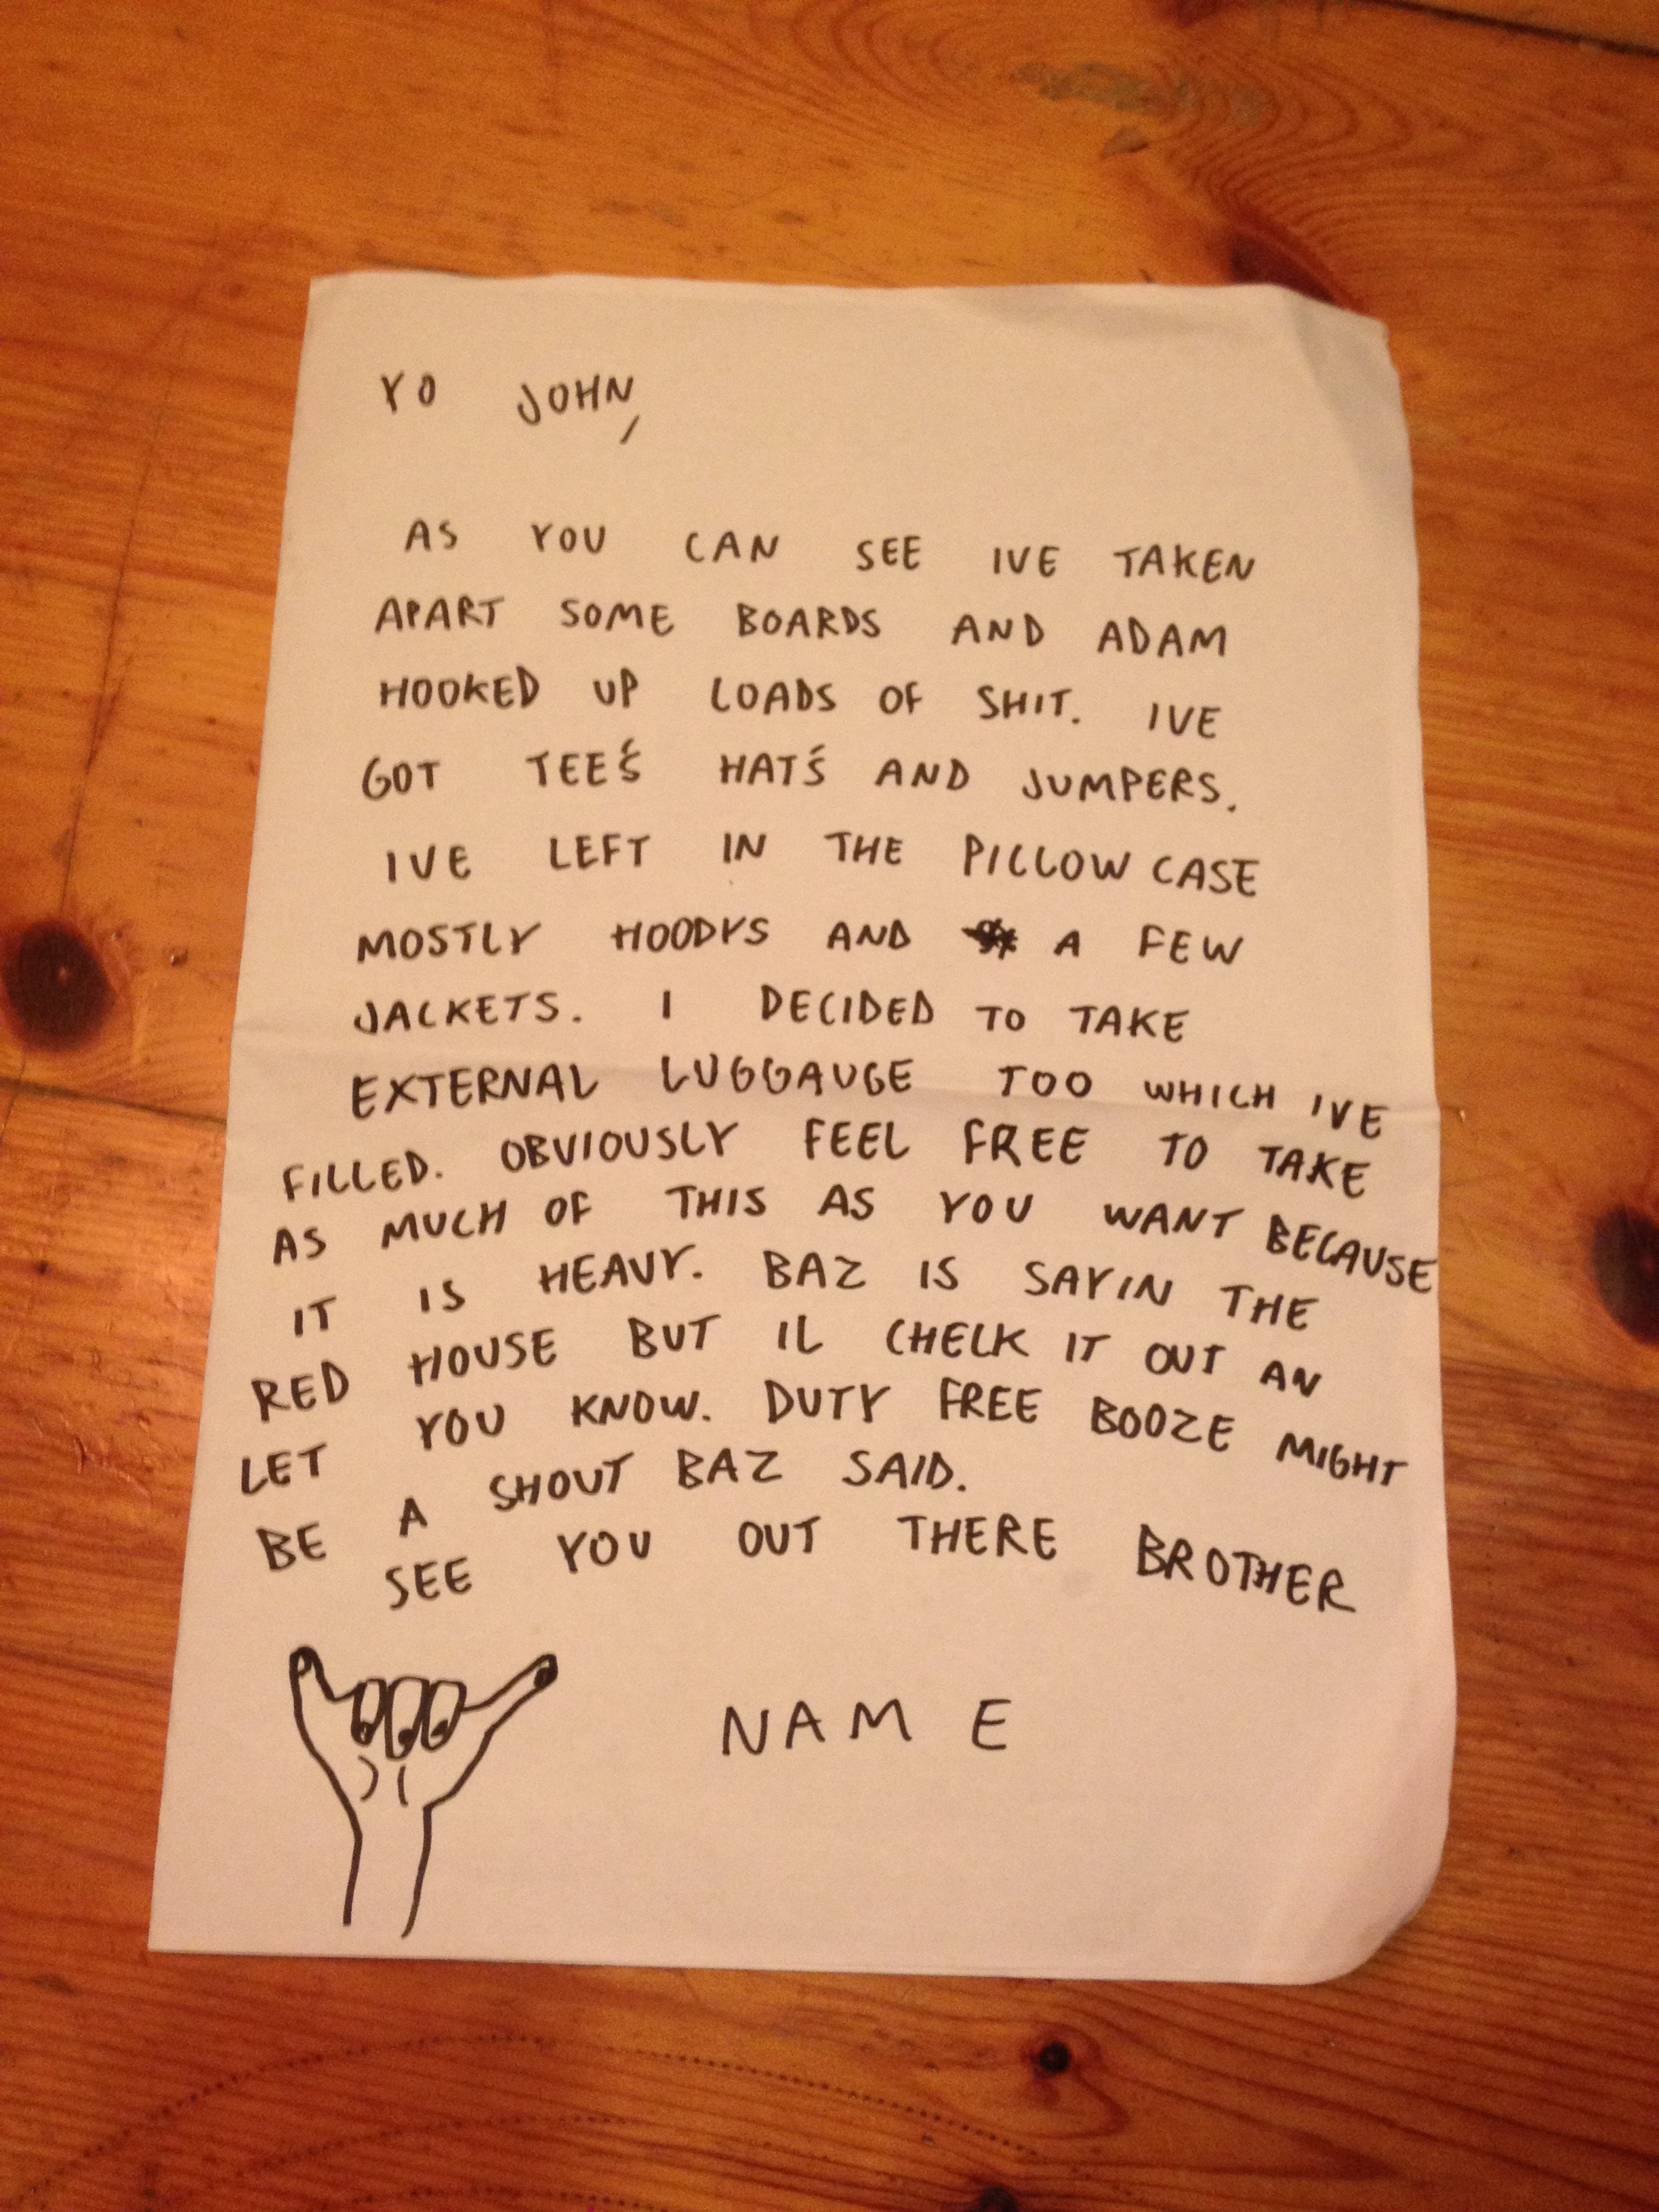 YO JOHN,
AS YOU CAN SEE IVE TAKEN
APART SOME BOARDS AND ADAM
HOOKED UP LOADS OF SHIT. IVE
GOT TEE'S HAT'S AND JUMPERS.
IVE LEFT IN THE PILLOW CASE
MOSTLY HOODYS AND A FEW
JACKETS. I DECIDED TO TAKE
EXTERNAL LUGGAUGE TOO WHICH IVE
FILLED. OBVIOUSLY FEEL FREE TO TAKE
AS MUCH OF THIS AS YOU WANT BECAUSE
IT IS HEAVY. BAZ IS SAYIN THE
RED HOUSE BUT IL CHECK IT OUT AN
LET YOU KNOW. DUTY FREE BOOZE MIGHT
BE A SHOUT BAZ SAID.
SEE YOU OUT THERE BROTHER
NAME